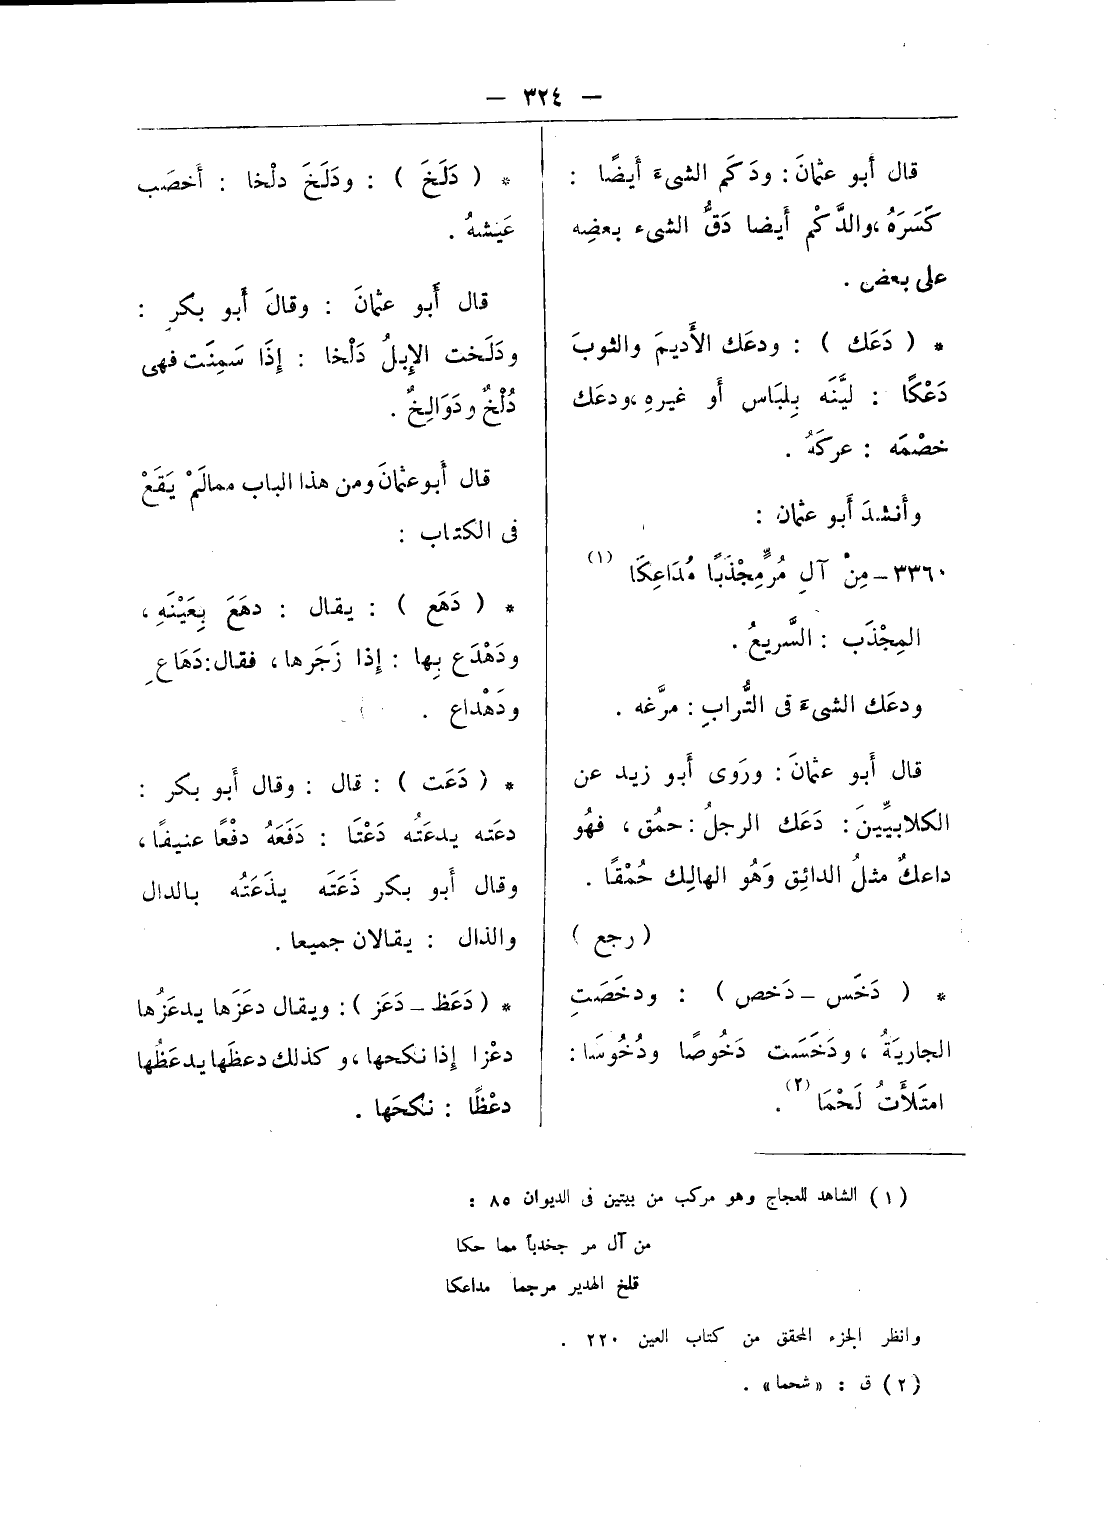 — ٣٢٤ —
قال أبو عثمانَ : ودَكَم الشىءَ أيضًا :
كَسَرَهُ ، والدَّكْم أيضا دَقُّ الشىء بعضِه
على بعض .
* ( دَعَك ) : ودعَك الأَديمَ والثوبَ
دَعْكًا : ليَّنَه بِلبَاس أو غيرهِ ، ودعَك
خصْمَه : عركَهُ .
وأَنشدَ أَبو عثمان :
٣٣٦٠ – مِنْ آلِ مُرٍّ مِجْذَبًا مُدَاعِكَا (١)
المِجْذَب : السَّريعُ .
ودعَك الشىءَ فى التُّرابِ : مرَّغه .
قال أبو عثمانَ : ورَوى أبو زيد عن
الكلابيِّينَ : دَعَك الرجلُ : حمُق ، فهُو
داعكٌ مثلُ الدائِق وَهُو الهالِك حُمْقًا .
( رجع )
* ( دَخَس – دَخص ) : ودخَصَتِ
الجاريَةُ ، ودَخَسَت دَخُوصًا ودُخُوسًا :
امتَلأَتْ لَحْمَا (٢) .
* ( دَلَخَ ) : ودَلَخَ دلْخا : أخصَب
عَيشهُ .
قال أَبو عثمانَ : وقالَ أَبو بكرٍ :
ودَلَخت الإِبلُ دَلْخا : إِذَا سَمِنَت فهى
دُلْخٌ ودَوَالِخٌ .
قال أَبو عثمانَ ومن هذا الباب ممالَمْ يَقَعْ
فى الكتاب :
* ( دَهَع ) : يقال : دهَعَ بِعَيْنَهِ ،
ودَهْدَع بِها : إِذا زَجَرها ، فقال : دَهَاعِ
ودَهْداع .
* ( دَعَت ) : قال : وقال أَبو بكر :
دعَته يدعَتُه دَعْتَا : دَفَعَهُ دفْعًا عنيفًا ،
وقال أَبو بكر ذَعَتَه يذَعَتُه بالدال
والذال : يقالان جميعا .
* ( دَعَظ – دَعَز ) : ويقال دعَزَها يدعَزُها
دعْزا إِذا نكحها ، وكذلك دعظَها يدعَظُها
دعْظًا : نكَحَها .
(١) الشاهد للعجاج وهو مركب من بيتين فى الديوان ٨٥ :
من آل مر جخدباً مما حكا
قلخ الهدير مرجما مداعكا
وانظر الجزء المحقق من كتاب العين ٢٢٠ .
(٢) ق : « شحما » .